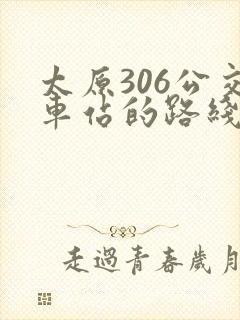 太原306公交
車佔的路綫
走過青春歲月